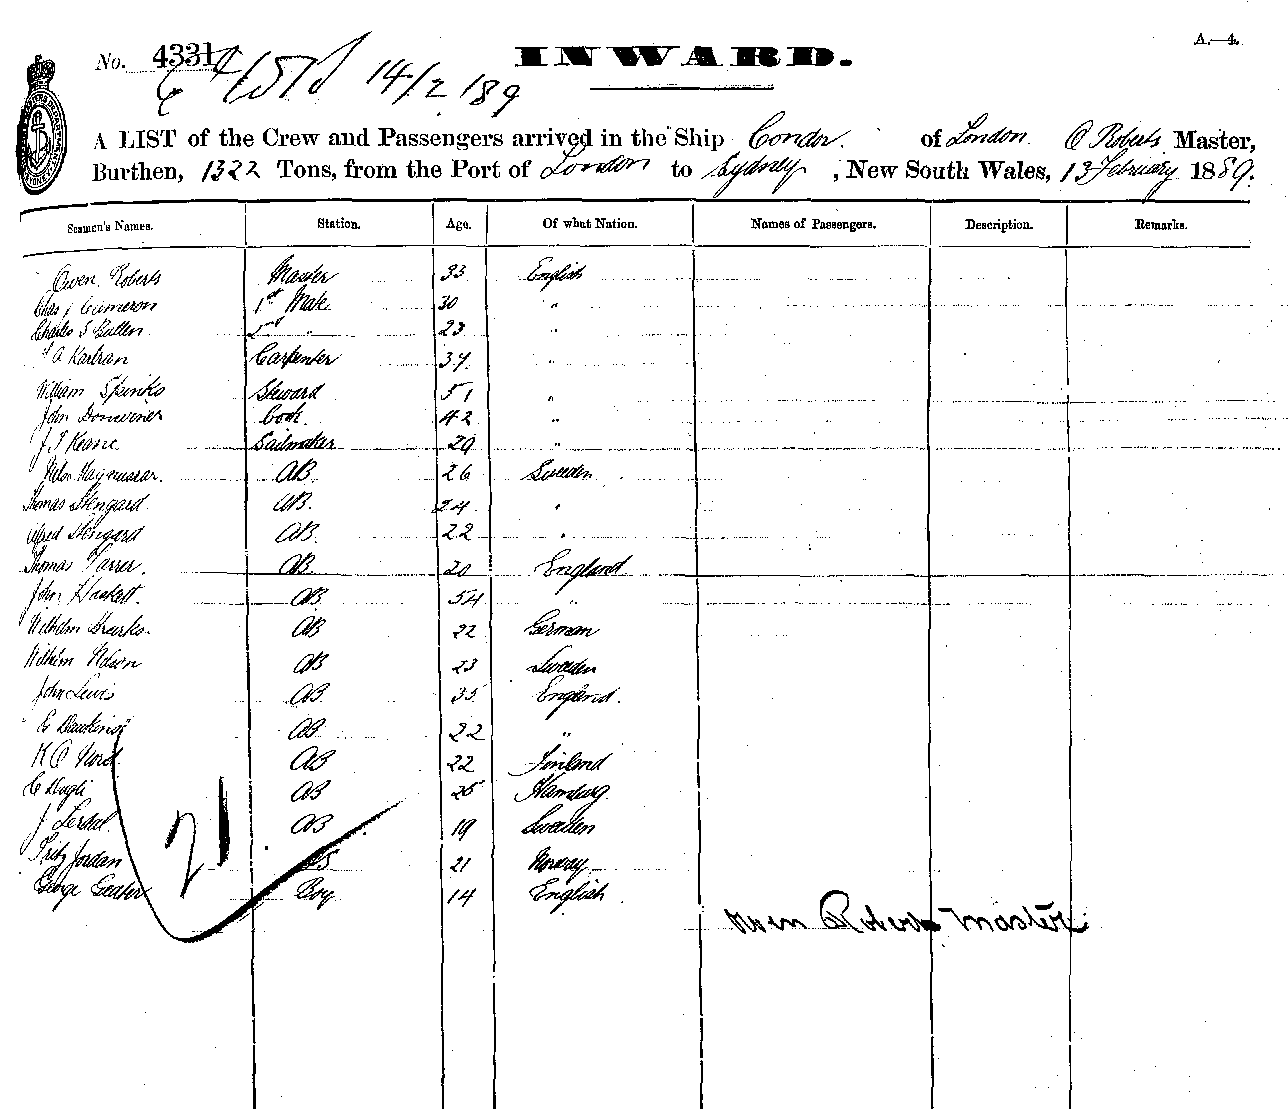 A.—4.
No. 4331
INWARD.
14/2 189
A LIST of the Crew and Passengers arrived in the Ship Condor. of London O Roberts Master,
Burthen, 1322 Tons, from the Port of London to Sydney, New South Wales, 13 February 1889.
Seamen's Names. Station. Age. Of what Nation. Names of Passengers. Description. Remarks.
Owen Roberts Master 33 English
Chas J Cameron 1st Mate 30 "
Charles S Bullen 2nd " 23 "
A Kartran Carpenter 37 "
William Spinks Steward 51 "
John Cook 42 "
J T Keane Sailmaker 29 "
AB 26 Sweden
Thomas Stengard AB. 24 "
Alfred Stengard AB. 22 "
Thomas Farrer. AB 20 England
John Haskett. AB 54 "
Wilhelm AB 22 German
Wilhelm AB 23 Sweden
John Lewis AB 35 England.
AB 22 "
K O Nord AB 22 Finland
C AB 25 Hamburg
J AB 19 Sweden
Fritz Jordan OS 21 Norway
George Boy 14 English
21
Owen Roberts Master